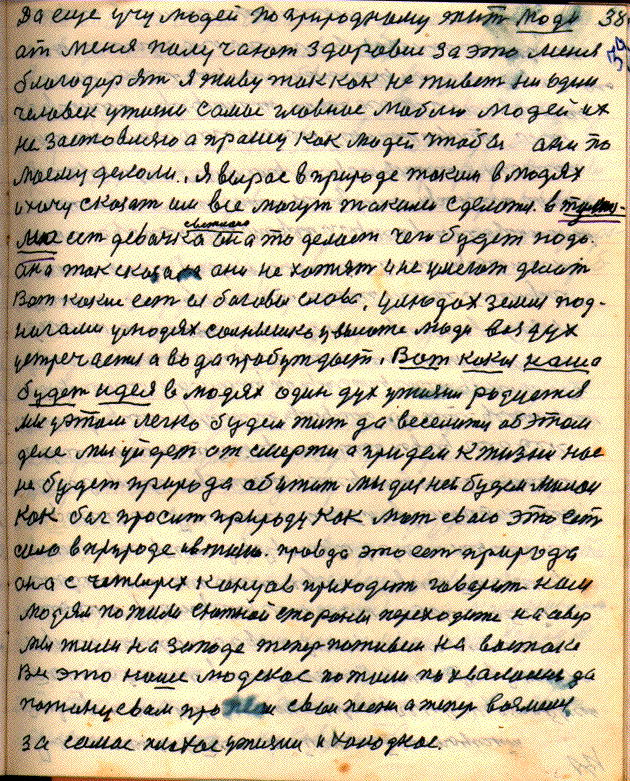 Да еще учу людей по природному жить Люди 38
от меня получают здоровие за это меня
благодарят я живу так как не живет ни один
человек у жизни самое главное люблю людей их
не заставляю а прашу как людей чтобы они по
моему делоли. Я вырос в природе таким в людях
и хочу сказат им все могут такими сделатся. в
ест девачка она то делает чего будет надо.
она так сказала они не хотят и не умеют делат
Вот какие ест ей баговы слова, у людях земля под-
нагами у людях солнышко у высоте люди воздух
устречаетця а вода пробуждает. Вот какая наша
будет идея в людях один дух у жизни родится
мы у этом легко будем жит да веселитц об этом
деле мы уйдем от смерти а придем к жизни нас
не будет природа абижат мы для ней будем милои
как бог просит природу как мат свою это ест
сила в природе правда это ест природа
она с четырех канцов приходит говарит нам
людям пожили с южной стораны переходите на север
мы жили на западе тепер поживем на востоке
Вы это наше людское пожили похвалилис да
потанцевали про свои песни а тепер возмемся
за самое плохое у жизни и холодное.